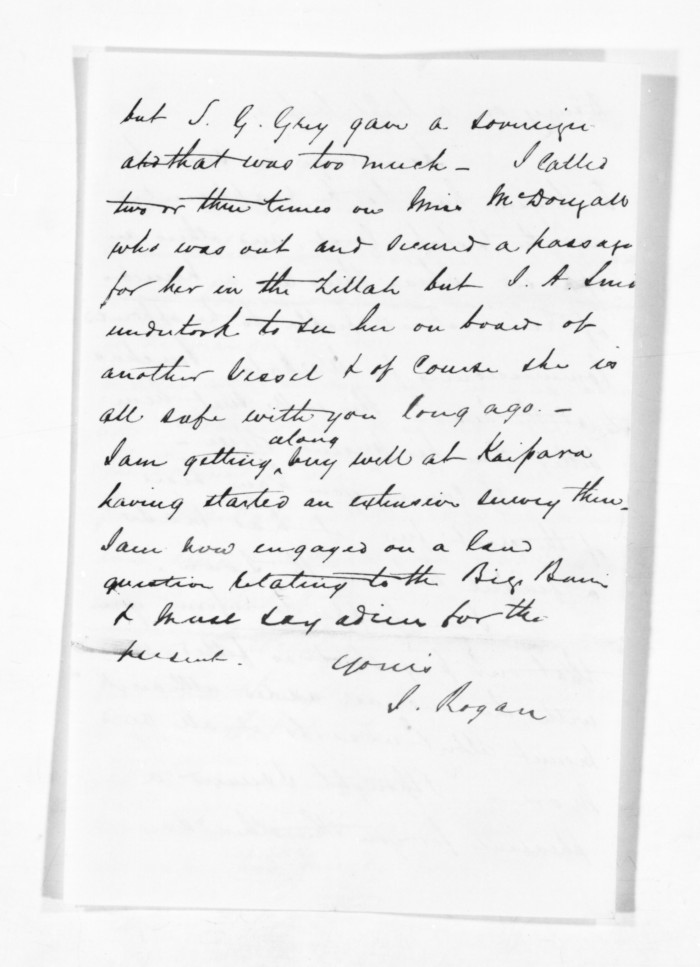 but S. G. Grey gave a sovereign
and that was too much – I called
two or three times on Miss McDougall
who was out and secured a passage
for her in the Zillah but J. A. Smi
undertook to see her on board of
another vessel & of course she is
all safe with you long ago. –
I am getting along very well at Kaipara
having started an extensive survey there.
I am now engaged on a land
question relating to the Big
& must say adieu for the
present. Yours
J. Rogan